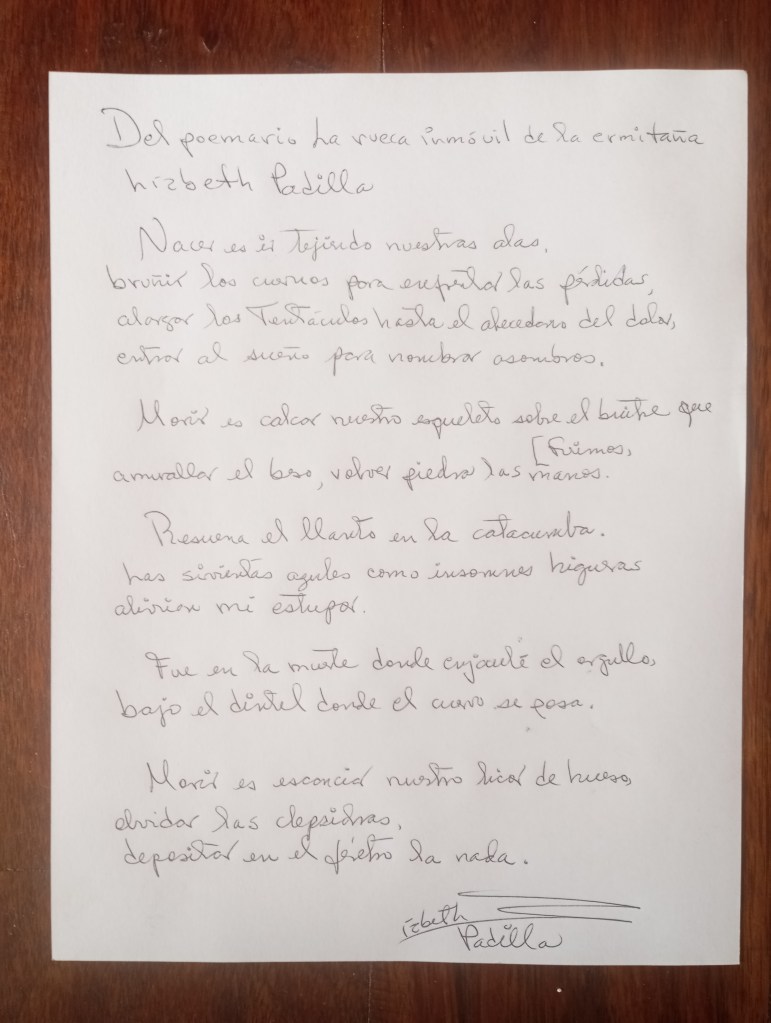 Del poemario La rueca inmóvil de la ermitaña
Lizbeth Padilla
Nacer es ir tejiendo nuestras alas,
bruñir los cuernos para enfrentar las pérdidas,
alargar los tentáculos hasta el abecedario del dolor,
entrar al sueño para nombrar asombros.
Morir es calcar nuestro esqueleto sobre el buitre que
[fuimos,
amurallar el beso, volver piedra las manos.
Resuena el llanto en la catacumba.
Las sirvientas azules como insomnes higueras
alivian mi estupor.
Fue en la muerte donde enjaulé el orgullo,
bajo el dintel donde el cuervo se posa.
Morir es escanciar nuestro licor de hueso,
olvidar las clepsidras,
depositar en el féretro la nada.
Lizbeth
Padilla